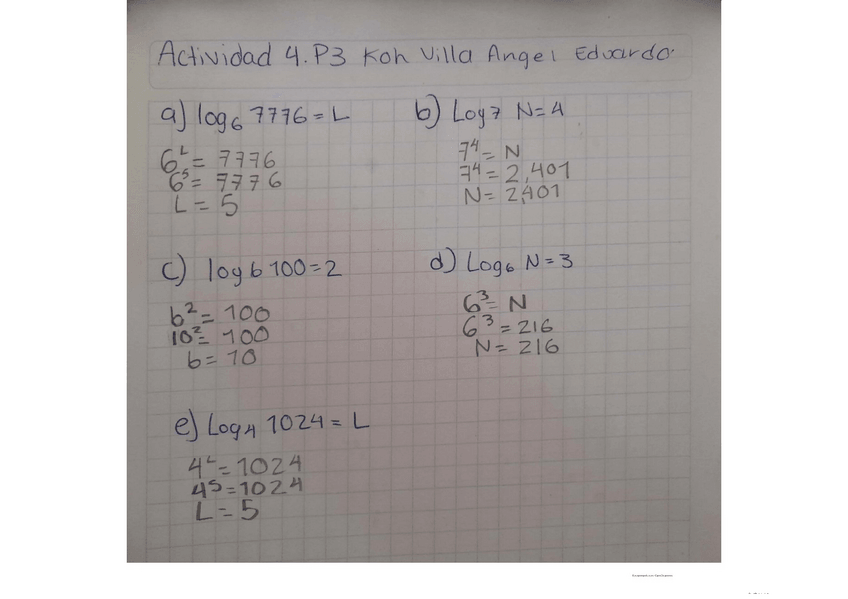 Actividad 4.P3 Koh Villa Angel Eduardo
a) log₆ 7776 = L
6ᴸ = 7776
6⁵ = 7776
L = 5
b) Log 7 N = 4
7⁴ = N
7⁴ = 2,401
N = 2,401
c) log b 100 = 2
b² = 100
10² = 100
b = 10
d) Log₆ N = 3
6³ = N
6³ = 216
N = 216
e) Log₄ 1024 = L
4ᴸ = 1024
4⁵ = 1024
L = 5